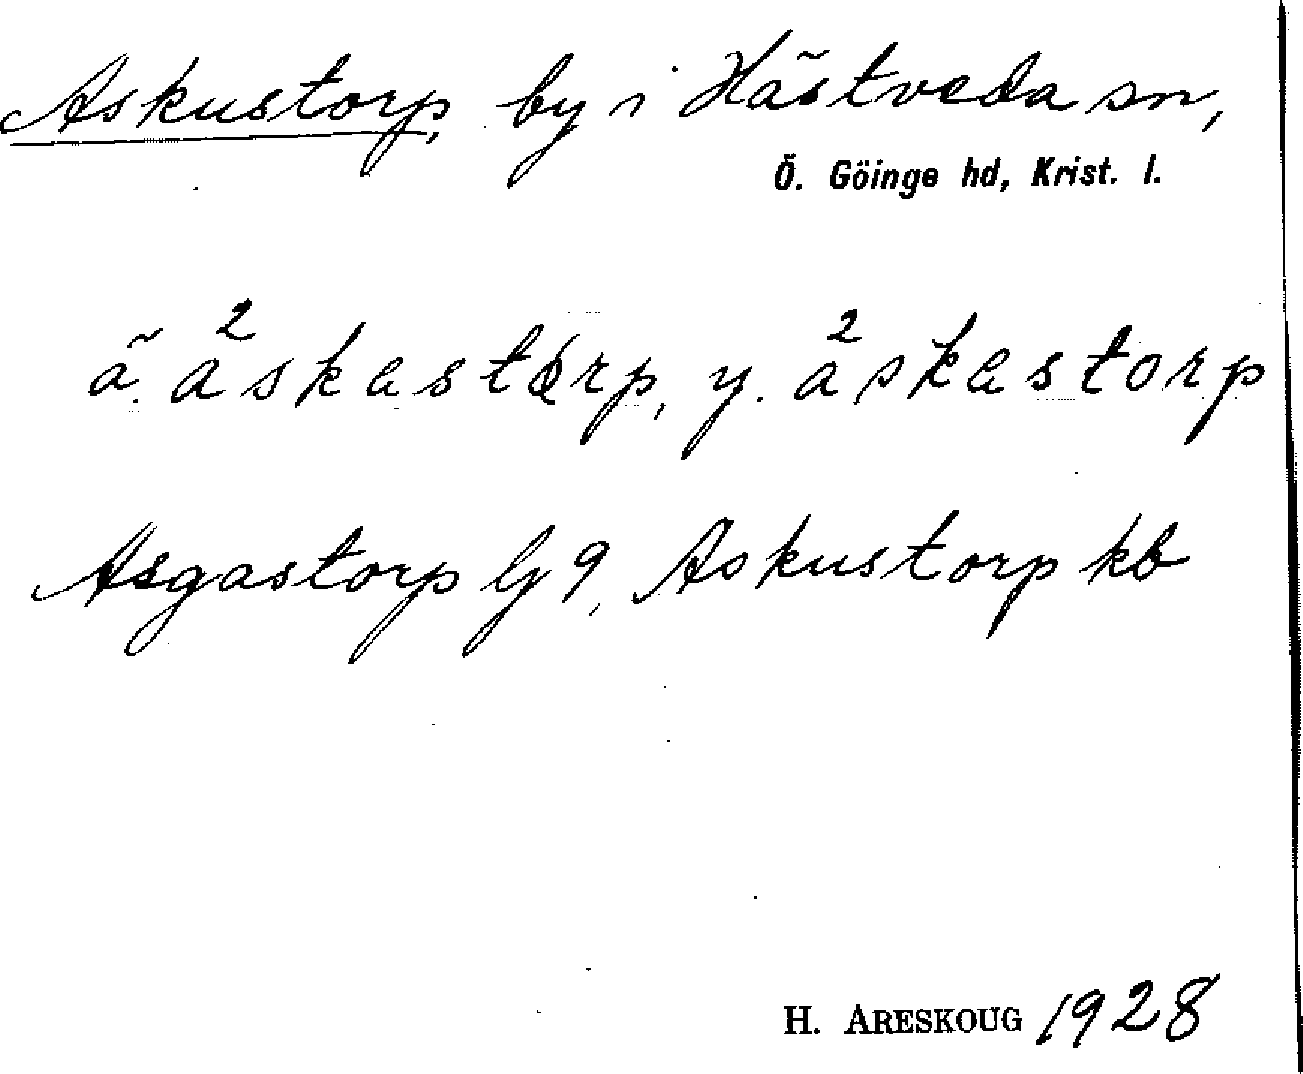 Askustorp, by i Hästveda sn,
Ö. Göinge hd, Krist. l.
ä. ²åskastørp, y. ²åskastorp
Asgastorp lj 9, Askustorp kb
H. ARESKOUG 1928